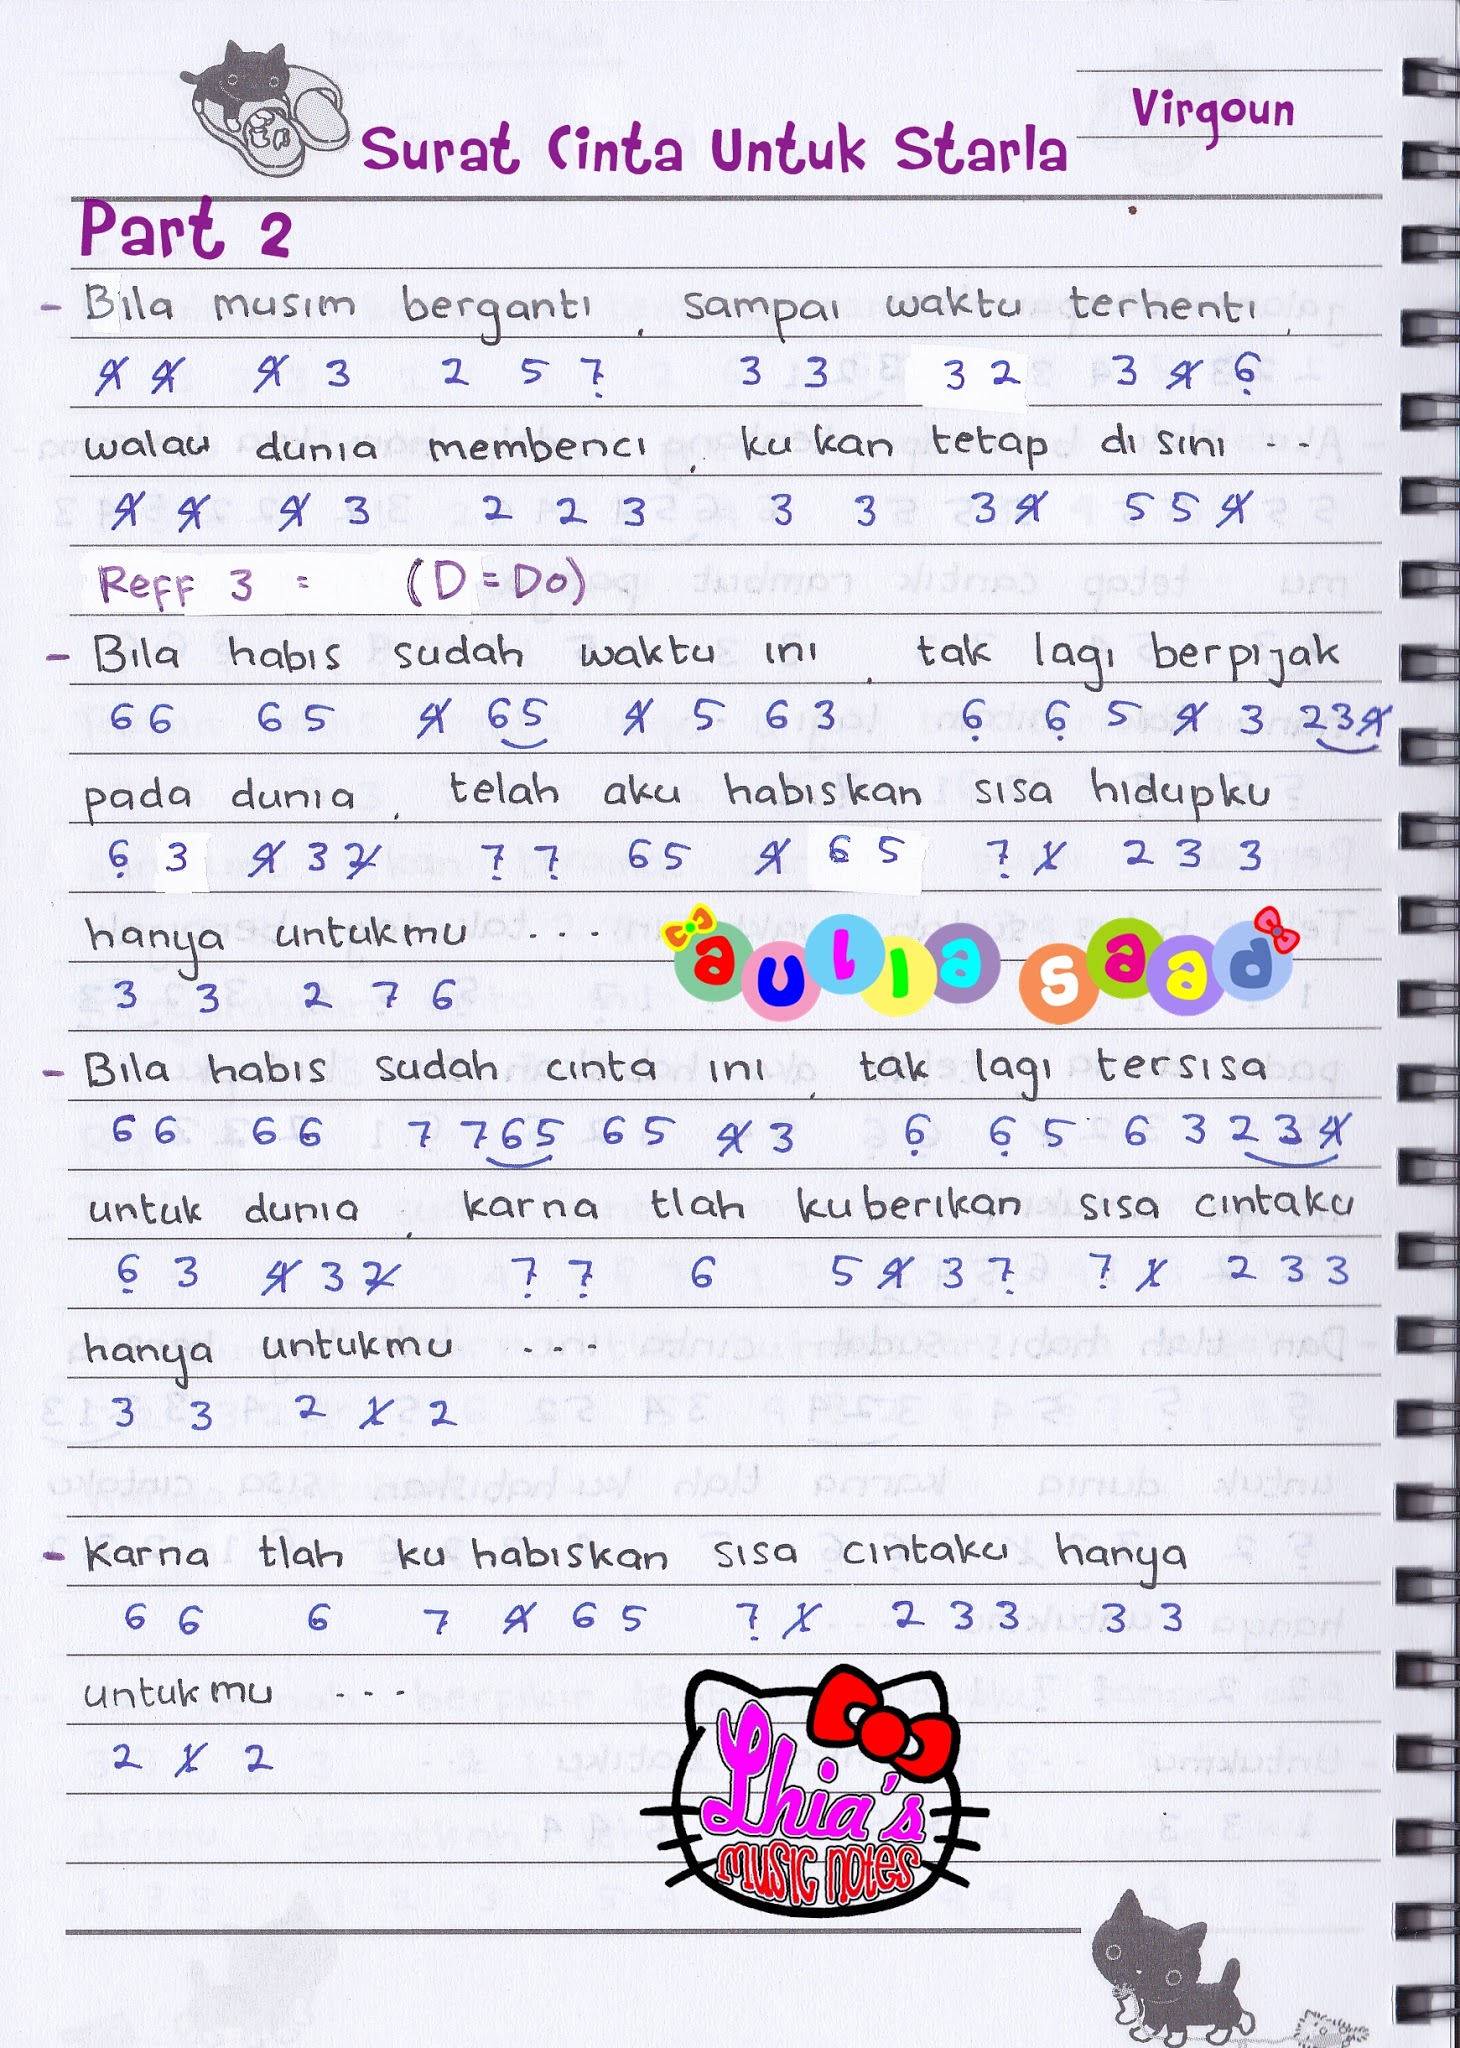 Virgoun
Surat Cinta Untuk Starla
Part 2
- Bila musim berganti, sampai waktu terhenti,
4̸ 4̸ 4̸ 3 2 5 7̣ 3 3 3 2 3 4̸ 6̣
walau dunia membenci, ku kan tetap disini --
4̸ 4̸ 4̸ 3 2 2 3 3 3 3 4̸ 5 5 4̸
Reff 3 : (D = Do)
- Bila habis sudah waktu ini, tak lagi berpijak
6 6 6 5 4̸ 6 5 4̸ 5 6 3 6̣ 6̣ 5 4̸ 3 2 3 4̸
pada dunia, telah aku habiskan sisa hidupku
6̣ 3 4̸ 3 2̸ 7̣ 7̣ 6 5 4̸ 6 5 7̣ 1̸ 2 3 3
hanya untukmu ....
3 3 2 7 6
aulia saad
- Bila habis sudah cinta ini, tak lagi tersisa
6 6 6 6 7 7 6 5 6 5 4̸ 3 6̣ 6̣ 5 6 3 2 3 4̸
untuk dunia, karna tlah kuberikan sisa cintaku
6̣ 3 4̸ 3 2̸ 7̣ 7̣ 6 5 4̸ 3 7̣ 7̣ 1̸ 2 3 3
hanya untukmu ...
3 3 2 1̸ 2
- Karna tlah ku habiskan sisa cintaku hanya
6 6 6 7 4̸ 6 5 7̣ 1̸ 2 3 3 3 3
untukmu ...
2 1̸ 2
Lhia's
music notes